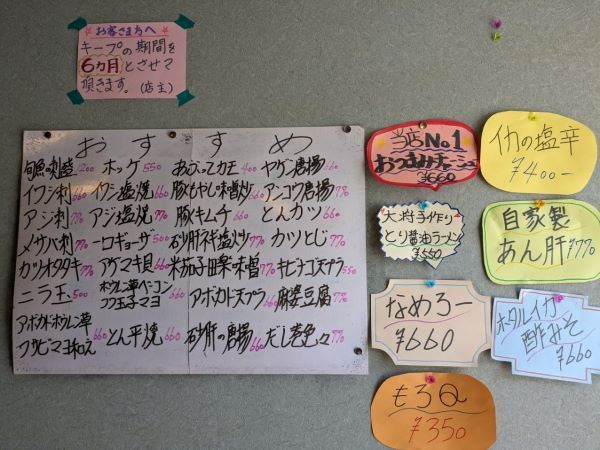 お客さま方へ
キープの期間を
6カ月とさせて
頂きます。(店主)
おすすめ
ホッケ 550
ヤゲン唐揚 660
イワシ刺 660
イワシ塩焼 660
豚もやし味噌炒 660
アンコウ唐揚 770
アジ刺 770
アジ塩焼 770
豚キムチ 660
とんカツ 660
メサバ刺 770
一口ギョーザ 500
砂肝ネギ塩炒 770
カツとじ 770
カツオタタキ 770
アゲマキ貝 660
米茄子田楽味噌 770
キビナゴ天プラ 550
ニラ玉 500
ホウレン草ベーコン
アボカド天プラ 660
麻婆豆腐 770
アボカドホウレン草
ワサビマヨ和え 660
とん平焼 660
砂肝の唐揚 660
だし巻色々 770
当店No.1
おつまみチャーシュー
¥660
イカの塩辛
¥400-
大将手作り
とり醤油ラーメン
¥550
自家製
あん肝 ¥770
なめろー
¥660
ホタルイカ
酢みそ
¥660
もろQ
¥350